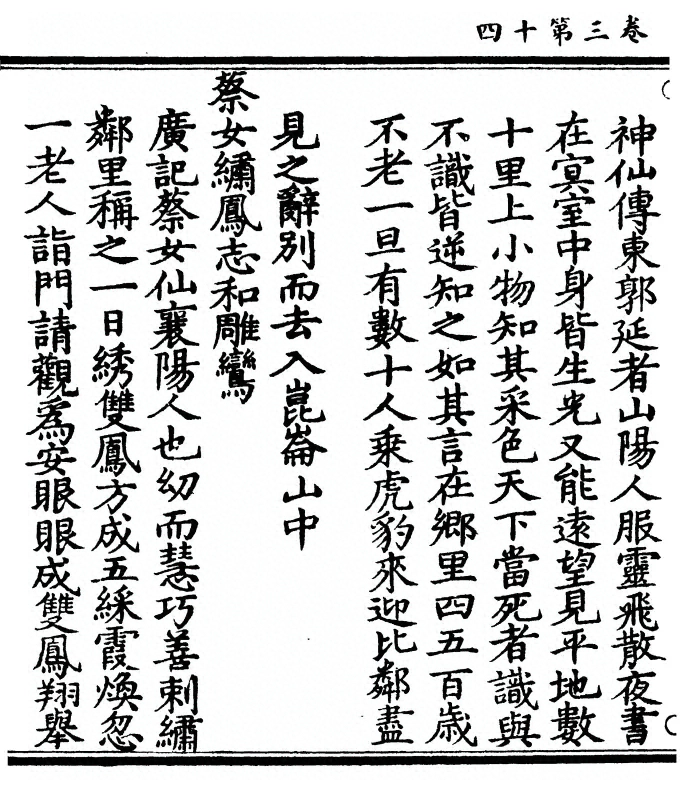 卷三第十四
神仙傳東郭延者山陽人服靈飛散夜書
在冥室中身皆生光又能遠望見平地數
十里上小物知其采色天下當死者識與
不識皆逆知之如其言在鄉里四五百歲
不老一旦有數十人乘虎豹來迎比鄰盡
見之辭別而去入崑崙山中
蔡女繡鳳志和雕鸞
廣記蔡女仙襄陽人也幼而慧巧善刺繡
鄰里稱之一日綉雙鳳方成五綵霞煥忽
一老人詣門請觀爲安眼眼成雙鳳翔舉